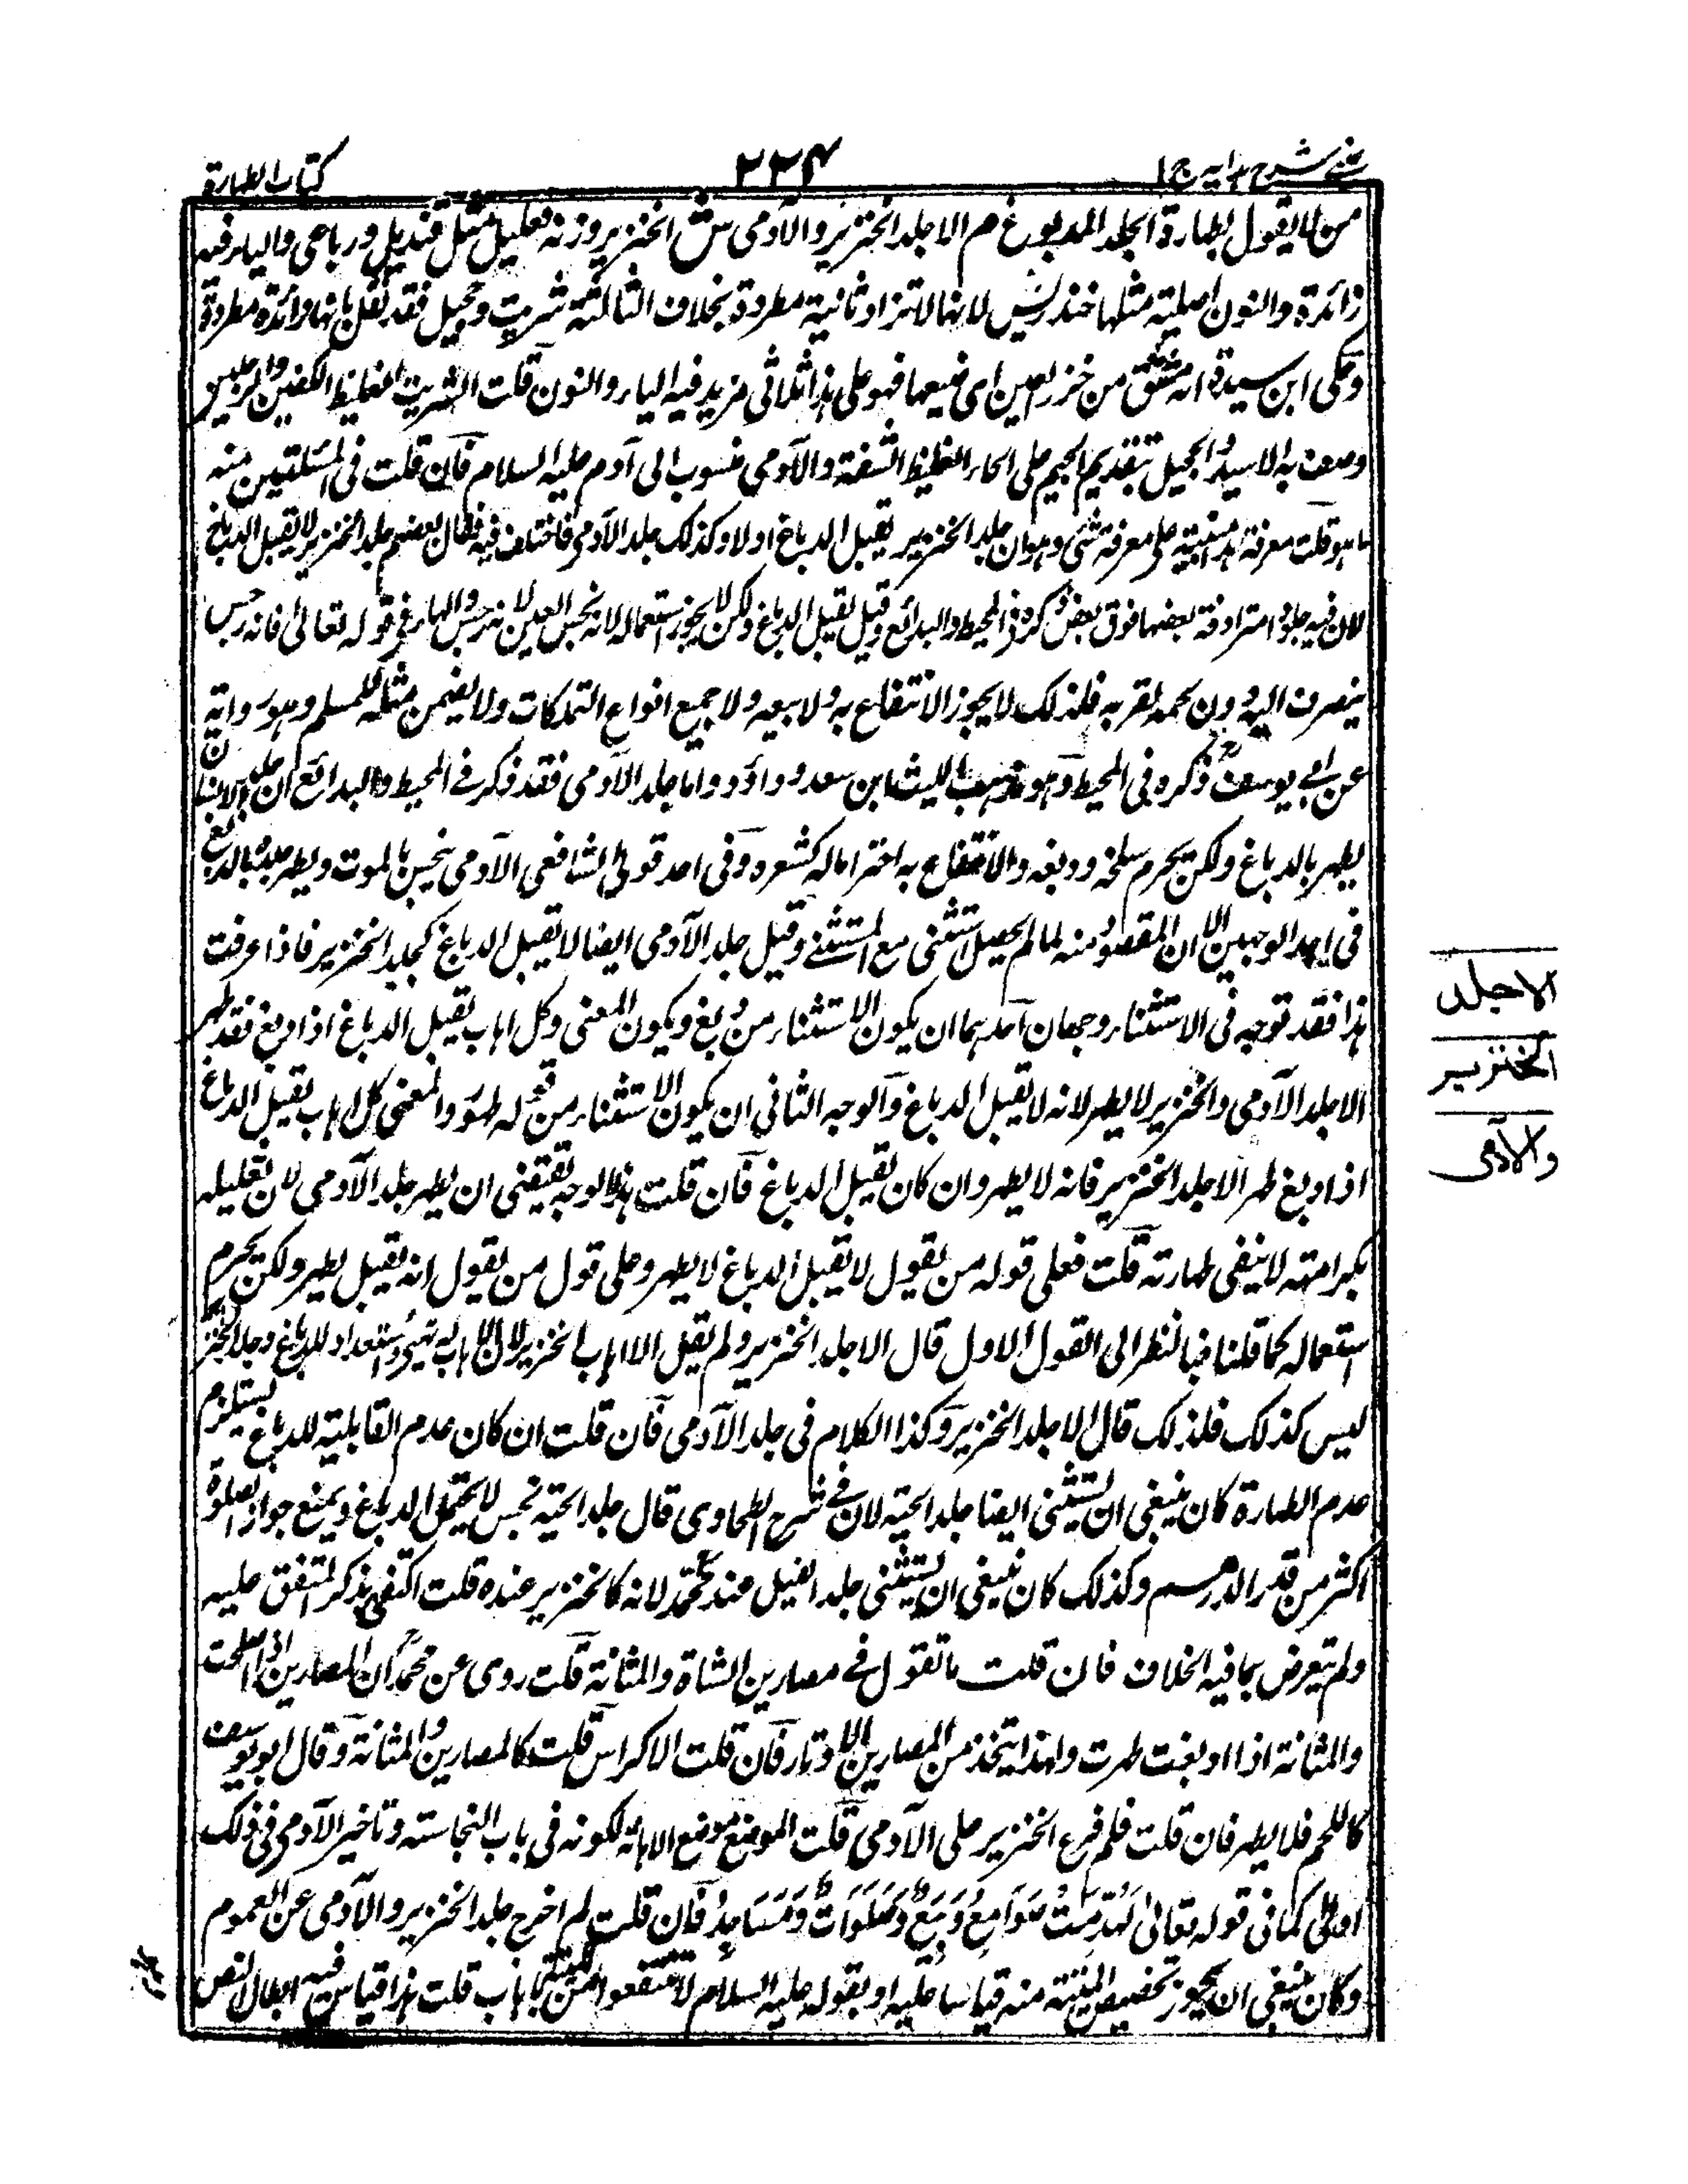 عينى شرح هدايه ج ١
٢٢٤
كتاب الطهارة
من لا يقول بطهارة الجلد المدبوغ م الا جلد الخنزير والآدمى ش الخنزير وزنه فعليل مثل قنديل ورباعى والياء فيه
زائدة والنون اصلية مثلها خندريس لانها لا تزاد ثانية مطردة بخلاف الثالثة شرنبث وجحنفل فقد نقل بانها زائدة مطردة
وحكى ابن سيدة انه مشتق من خزر العين اى ضيعها فهو على هذا ثلاثى مزيد فيه الياء والنون قلت الشرنبث الغليظ الكفين والرجلين
وصف به الاسد والجحنفل بتقديم الجيم على الحاء الغليظ الشفة والآدمى منسوب الى آدم عليه السلام فان قلت فى المستثنيين منه
ما هو قلت معرفة هذا مبنية على معرفة شئ وهو ان جلد الخنزير يقبل الدباغ اولا وكذلك جلد الآدمى فاختلف فيه فقال بعضهم جلد الخنزير لا يقبل الدباغ
لان فيه جلودا مترادفة بعضها فوق بعض ذكره فى المحيط والبدائع وقيل يقبل الدباغ ولكن لا يجوز استعماله لانه نجس العين لانه رجس والهاء فى قوله تعالى فانه رجس
ينصرف اليه دون لحمه لقربه فلذلك لا يجوز الانتفاع به ولا بيعه ولا جميع انواع التملكات ولا يضمن متلفه للمسلم وهو رواية
عن ابى يوسف ذكره فى المحيط وهو مذهب الليث ابن سعد و داؤد واما جلد الآدمى فقد ذكر فى المحيط والبدائع ان جلد الانسان
يطهر بالدباغ ولكن يحرم سلخه ودبغه والانتفاع به احتراما له كشعره وفى احد قولى الشافعى الآدمى ينجس بالموت ويطهر جلده بالدبغ
فى احد الوجهين الا ان المقصود منه لما لم يحصل استثنى مع المستثنى وقيل جلد الآدمى ايضا لا يقبل الدباغ كجلد الخنزير فاذا عرفت
هذا فقد توجه فى الاستثناء وجهان احدهما ان يكون الاستثناء من دبغ ويكون المعنى وكل اهاب يقبل الدباغ اذا دبغ فقد طهر
الا جلد الآدمى والخنزير لا يطهر لانه لا يقبل الدباغ والوجه الثانى ان يكون الاستثناء من قوله طهر والمعنى كل اهاب يقبل الدباغ
اذا دبغ طهر الا جلد الخنزير فانه لا يطهر وان كان يقبل الدباغ فان قلت هذا الوجه يقتضى ان يطهر جلد الآدمى لان تعليله
بكرامته لا ينفى طهارته قلت فعلى قوله من يقول لا يقبل الدباغ لا يطهر وعلى قول من يقول انه يقبل يطهر ولكن يحرم
استعماله كما قلنا فبالنظر الى القول الاول قال الا جلد الخنزير ولم يقل الا اهاب الخنزير لان الاهاب له تهيؤ واستعداد للدباغ وجلد الخنزير
ليس كذلك فلذلك قال الا جلد الخنزير وكذا الكلام فى جلد الآدمى فان قلت ان كان عدم القابلية للدباغ يستلزم
عدم الطهارة كان ينبغى ان يستثنى ايضا جلد الحية لان فى شرح الطحاوى قال جلد الحية نجس لا يحتمل الدباغ ويمنع جواز الصلوة
اكثر من قدر الدرهم وكذلك كان ينبغى ان يستثنى جلد الفيل عند محمد لانه كالخنزير عنده قلت اكتفى بذكر المتفق عليه
ولم يتعرض بما فيه الخلاف فان قلت ما تقول فى مصارين الشاة والمثانة قلت روى عن محمد ان المصارين اذا اصلحت
والمثانة اذا ادبغت طهرت ولهذا يتخذ من المصارين الاوتار فان قلت الاكراس قلت كالمصارين والمثانة وقال ابو يوسف
كاللحم فلا يطهر فان قلت فلم فرع الخنزير على الآدمى قلت الموضع موضع الاهانة لكونه فى باب النجاسة وتاخير الآدمى فى ذلك
اولى كما فى قوله تعالى لَهُدِّمَتْ صَوَامِعُ وَبِيَعٌ وَصَلَوَاتٌ وَمَسَاجِدُ فان قلت لم اخرج جلد الخنزير والآدمى عن العموم
وكان ينبغى ان يجوز تخصيص الميتة منه قياسا عليه او بقوله عليه السلام لا تنتفعوا من الميتة باهاب قلت هذا قياس فيه ابطال النص
الا جلد
الخنزير
والآدمى